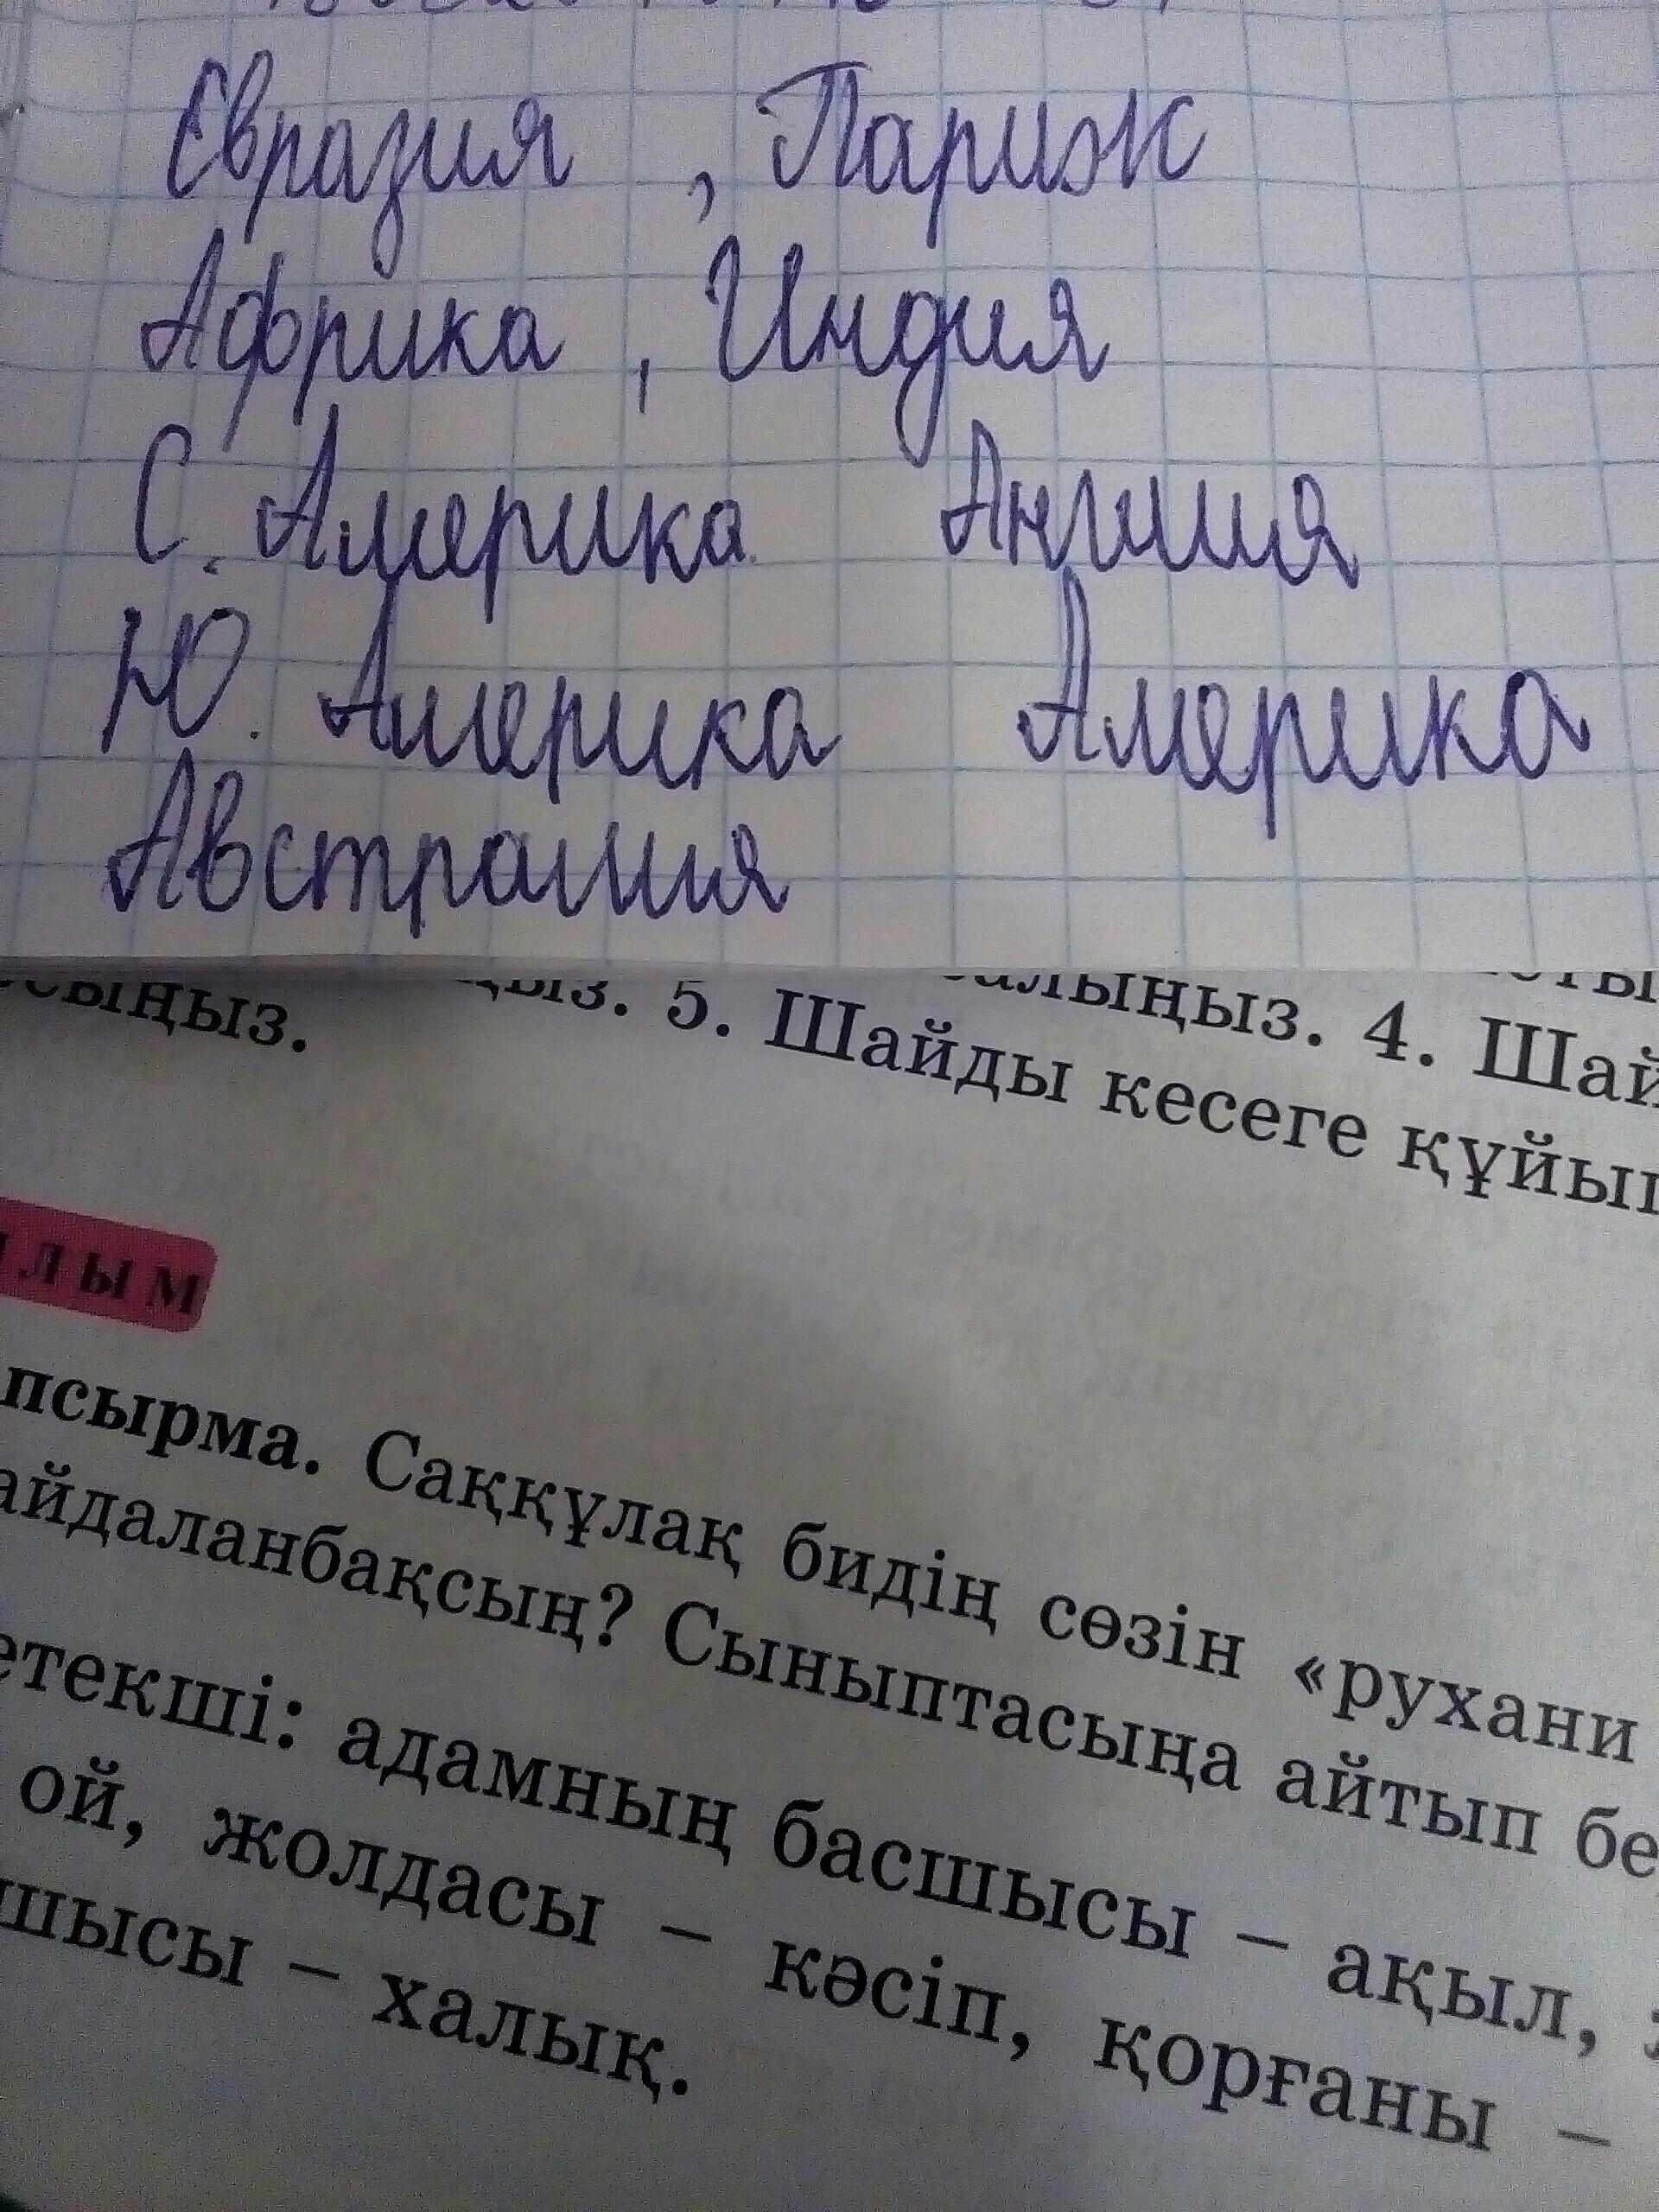 Евразия , Париж
Африка , Индия
С. Америка Англия
Ю. Америка Америка
Австралия
алыңыз. 4. Шай
5. Шайды кесеге құйып
сыңыз.
лым
псырма. Саққұлақ бидің сөзін «рухани
айдаланбақсың? Сыныптасыңа айтып бе
етекші: адамның басшысы – ақыл,
ой, жолдасы – кәсіп, қорғаны –
шысы – халық.